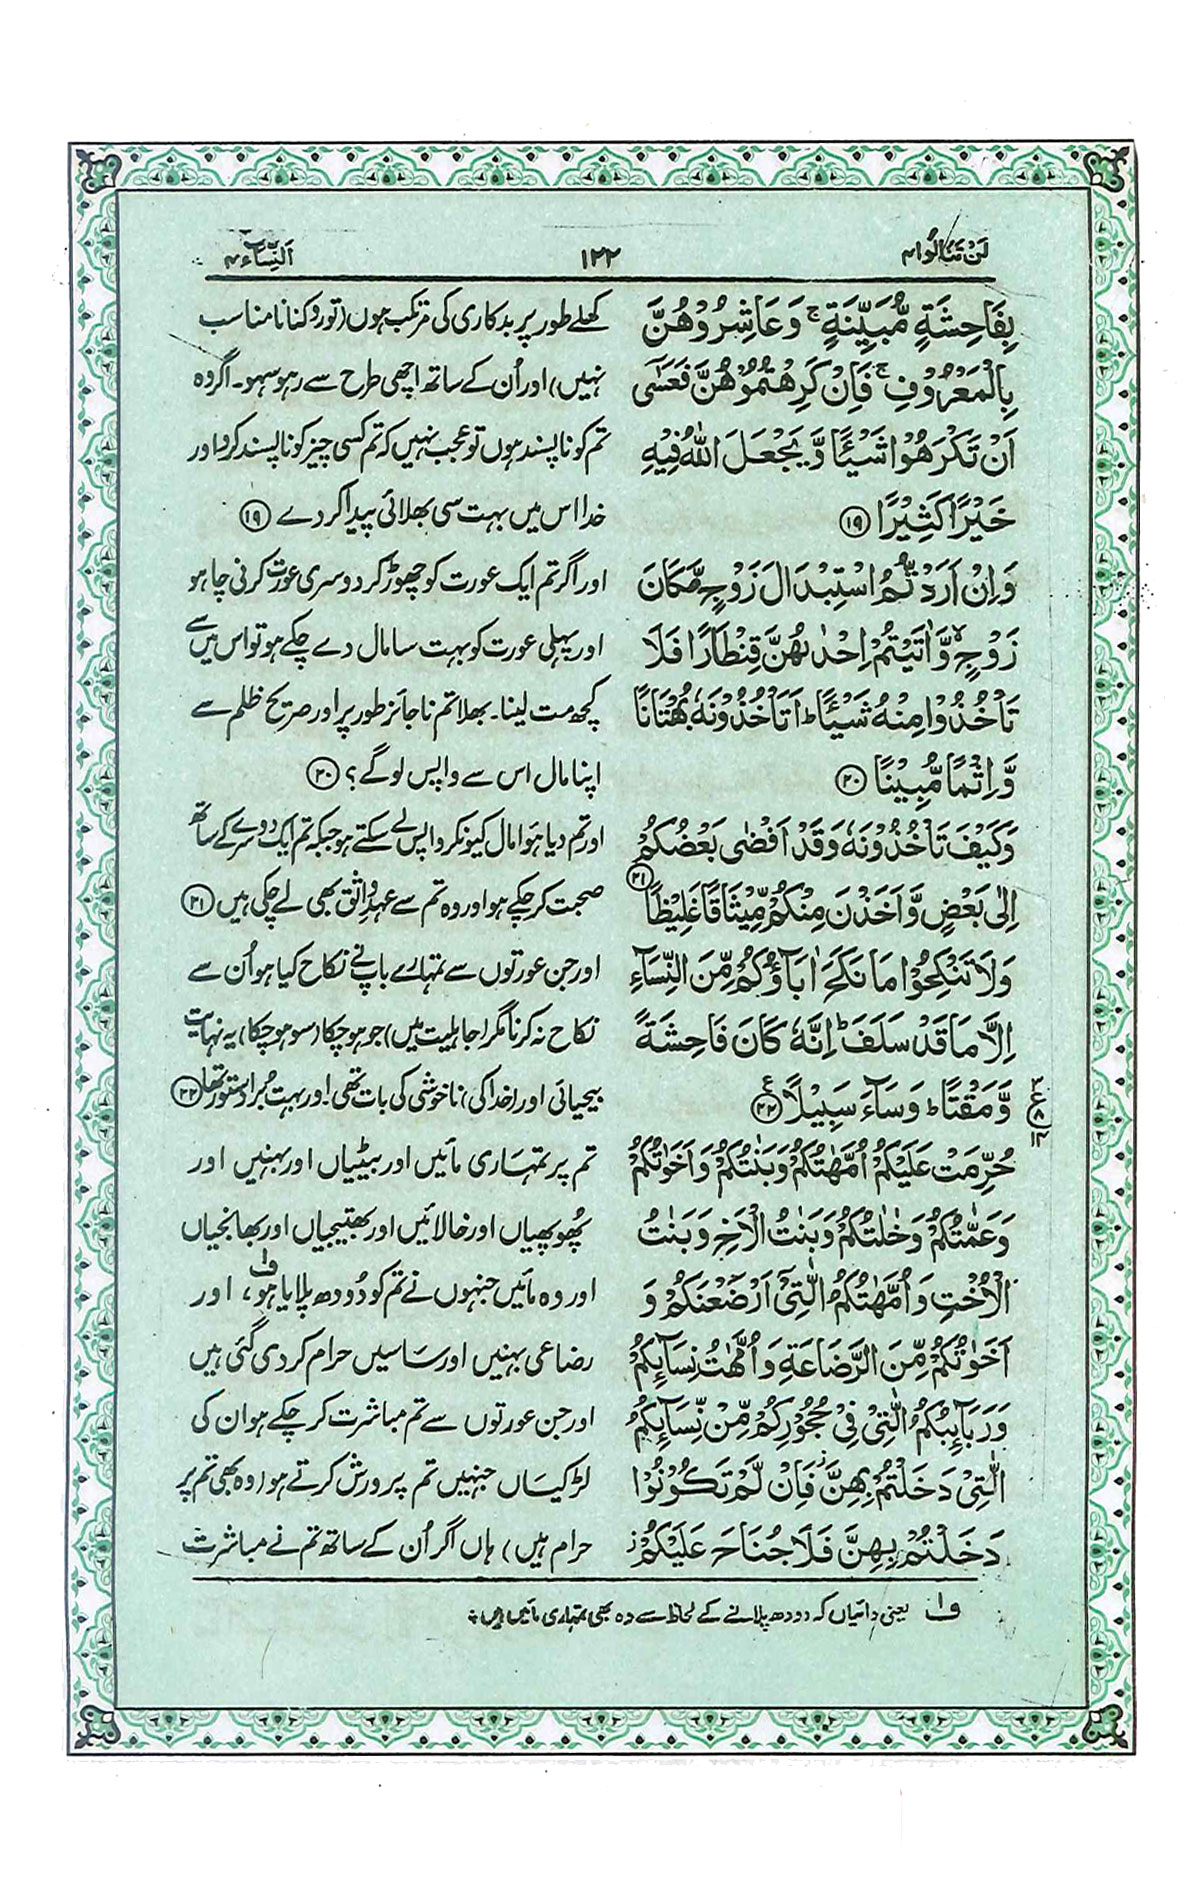 لَنْ تَنَالُوا ۴
۱۲۲
اَلنِّسَآء ۴
بِفَاحِشَةٍ مُّبَيِّنَةٍ ۚ وَعَاشِرُوْهُنَّ
بِالْمَعْرُوْفِ ۚ فَاِنْ كَرِهْتُمُوْهُنَّ فَعَسٰٓى
اَنْ تَكْرَهُوْا شَيْـًٔا وَّيَجْعَلَ اللّٰهُ فِيْهِ
خَيْرًا كَثِيْرًا ۝۱۹
وَاِنْ اَرَدْتُّمُ اسْتِبْدَالَ زَوْجٍ مَّكَانَ
زَوْجٍ ۙ وَّاٰتَيْتُمْ اِحْدٰىهُنَّ قِنْطَارًا فَلَا
تَاْخُذُوْا مِنْهُ شَيْـًٔا ؕ اَتَاْخُذُوْنَهٗ بُهْتَانًا
وَّاِثْمًا مُّبِيْنًا ۝۲۰
وَكَيْفَ تَاْخُذُوْنَهٗ وَقَدْ اَفْضٰى بَعْضُكُمْ
اِلٰى بَعْضٍ وَّاَخَذْنَ مِنْكُمْ مِّيْثَاقًا غَلِيْظًا ۝۲۱
وَلَا تَنْكِحُوْا مَا نَكَحَ اٰبَآؤُكُمْ مِّنَ النِّسَآءِ
اِلَّا مَا قَدْ سَلَفَ ؕ اِنَّهٗ كَانَ فَاحِشَةً
وَّمَقْتًا ؕ وَسَآءَ سَبِيْلًا ۝۲۲ ع
حُرِّمَتْ عَلَيْكُمْ اُمَّهٰتُكُمْ وَبَنٰتُكُمْ وَاَخَوٰتُكُمْ
وَعَمّٰتُكُمْ وَخٰلٰتُكُمْ وَبَنٰتُ الْاَخِ وَبَنٰتُ
الْاُخْتِ وَاُمَّهٰتُكُمُ الّٰتِيْٓ اَرْضَعْنَكُمْ وَ
اَخَوٰتُكُمْ مِّنَ الرَّضَاعَةِ وَاُمَّهٰتُ نِسَآئِكُمْ
وَرَبَآئِبُكُمُ الّٰتِيْ فِيْ حُجُوْرِكُمْ مِّنْ نِّسَآئِكُمُ
الّٰتِيْ دَخَلْتُمْ بِهِنَّ ؗ فَاِنْ لَّمْ تَكُوْنُوْا
دَخَلْتُمْ بِهِنَّ فَلَا جُنَاحَ عَلَيْكُمْ ؗ
کھلے طور پر بدکاری کی مرتکب ہوں (تو روکنا نامناسب
نہیں) اور اُن کے ساتھ اچھی طرح سے رہو سہو۔ اگر وہ
تم کو ناپسند ہوں تو عجب نہیں کہ تم کسی چیز کو ناپسند کرو اور
خدا اس میں بہت سی بھلائی پیدا کر دے ۝۱۹
اور اگر تم ایک عورت کو چھوڑ کر دوسری عورت کرنی چاہو
اور پہلی عورت کو بہت سا مال دے چکے ہو تو اس میں سے
کچھ مت لینا۔ بھلا تم ناجائز طور پر اور صریح ظلم سے
اپنا مال اس سے واپس لوگے؟ ۝۲۰
اور تم دیا ہوا مال کیونکر واپس لے سکتے ہو جبکہ تم ایک دوسرے کے ساتھ
صحبت کر چکے ہو اور وہ تم سے عہدِ واثق بھی لے چکی ہیں ۝۲۱
اور جن عورتوں سے تمہارے باپ نے نکاح کیا ہو اُن سے
نکاح نہ کرنا مگر (جاہلیت میں) جو ہو چکا (سو ہو چکا) یہ نہایت
بیحیائی اور (خدا کی) ناخوشی کی بات تھی۔ اور بہت بُرا دستور تھا ۝۲۲
تم پر تمہاری مائیں اور بیٹیاں اور بہنیں اور
پھوپھیاں اور خالائیں اور بھتیجیاں اور بھانجیاں
اور وہ مائیں جنہوں نے تم کو دُودھ پلایا ہو ف۱، اور
رضاعی بہنیں اور ساسیں حرام کر دی گئی ہیں
اور جن عورتوں سے تم مباشرت کر چکے ہو ان کی
لڑکیاں جنہیں تم پرورش کرتے ہو (وہ بھی تم پر
حرام ہیں) ہاں اگر اُن کے ساتھ تم نے مباشرت
ف۱ یعنی دائیاں کہ دودھ پلانے کے لحاظ سے وہ بھی تمہاری مائیں ہیں